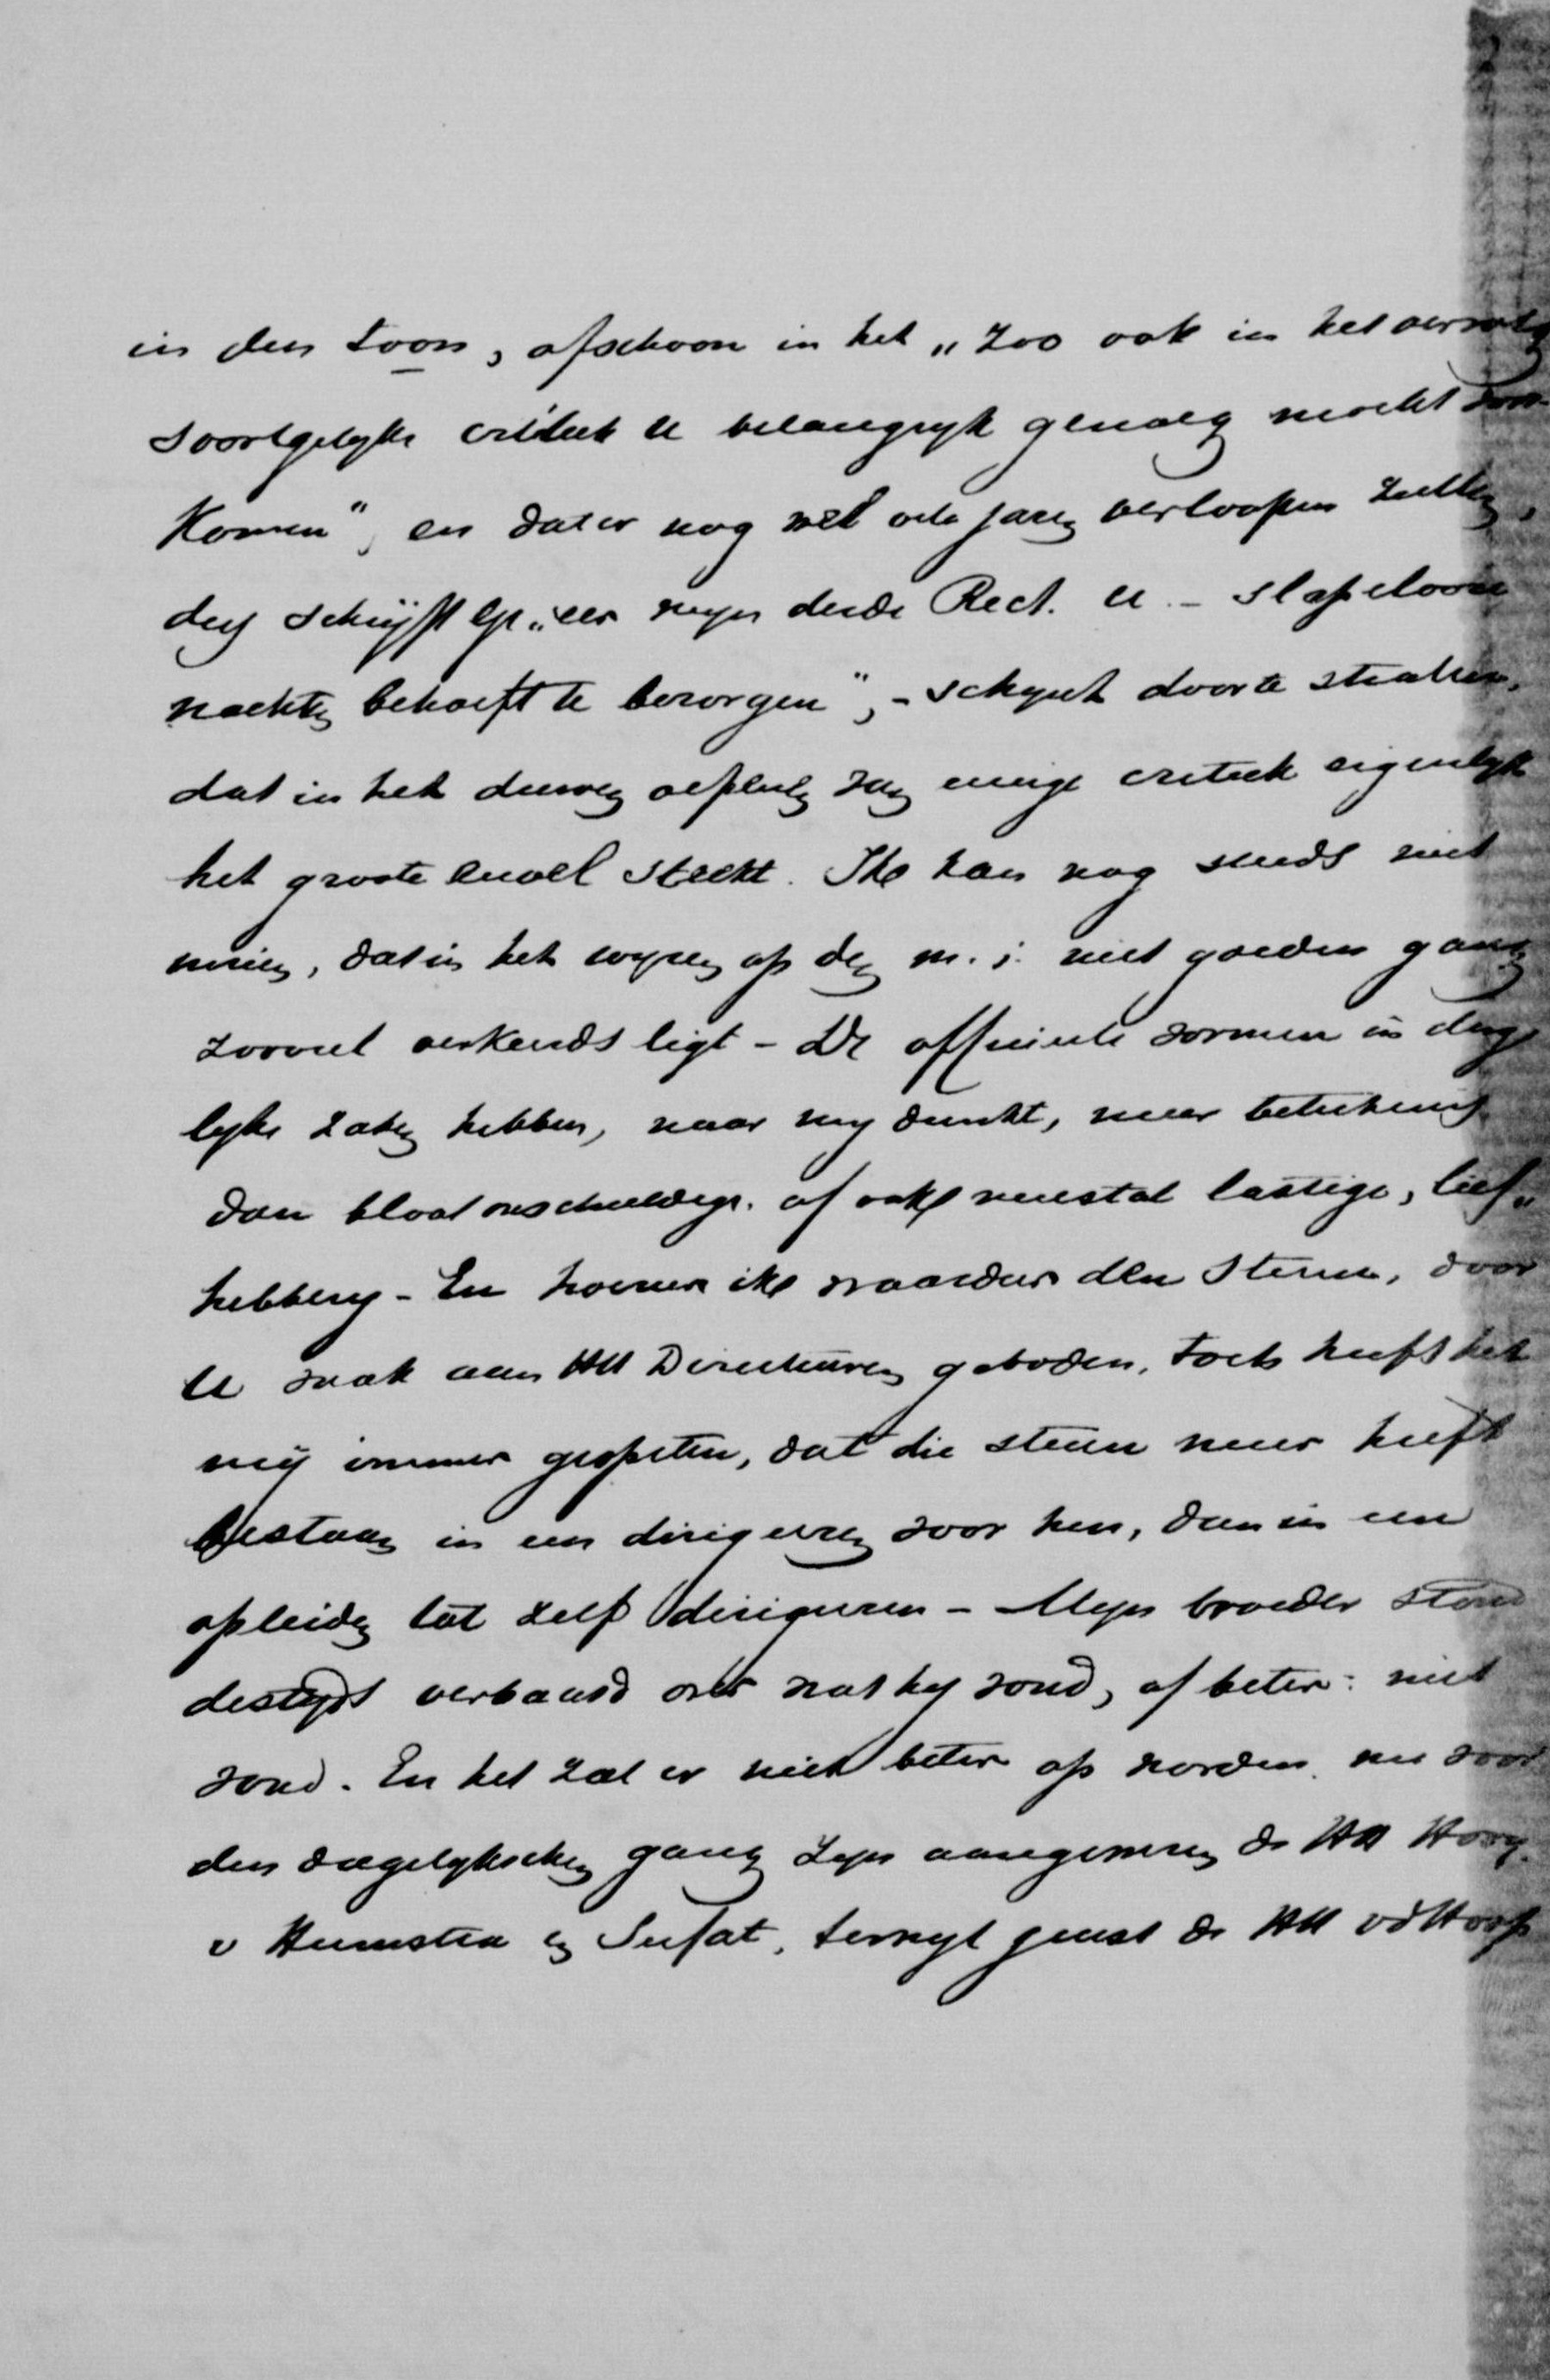 in den toon, ofschoon in het „Zoo ook in het vervolg
soortgelyke critiek U belangryk genoeg mocht voor-
komen", en dat er nog wel vele jaren verloopen zullen,
den schryft gy „eer myn derde Rect. U - slapelooze
nachten behoeft te bezorgen", - schynt door te stralen,
dat in het durven oefenen van eenige critiek eigenlyk
het groote euvel steekt. Ik kan nog steeds niet
inzien, dat in het wyzen op den m. i. niet goeden gang
zooveel verkeerds ligt - De officieele vormen in derge
lyke zaken hebben, naar my dunkt, meer beteekenis
dan bloot onschuldige of ook meestal lastige, lief„
hebbery - En hoezeer ik waardeer den steun, door
U vaak aan HH Directeuren geboden, toch heeft het
mij immer gespeten, dat die steun meer heeft
bestaan in een dirigeeren voor hen, dan in een
opleiden tot zelf dirigeeren - Myn broeder stond
destyds verbaasd over wat hy vond, of beter: niet
vond. En het zal er niet beter op worden, nu voor
den dagelykschen gang zyn aangewezen de HH Hoog.
v Heemstra en Seyfat, terwyl juist de HH vd Hoop